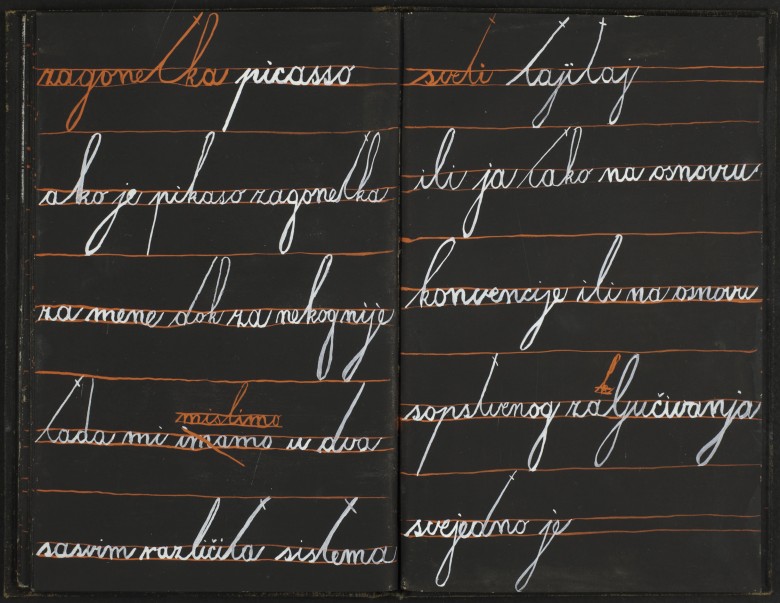 zagonetka picasso
ako je pikaso zagonetka
za mene dok za nekog nije
mislimo
tada mi imamo u dva
sasvim različita sistema
sveti tajitaj
ili ja tako na osnovu
konvencije ili na osnovu
k
sopstvenog zaljučivanja
svejedno je